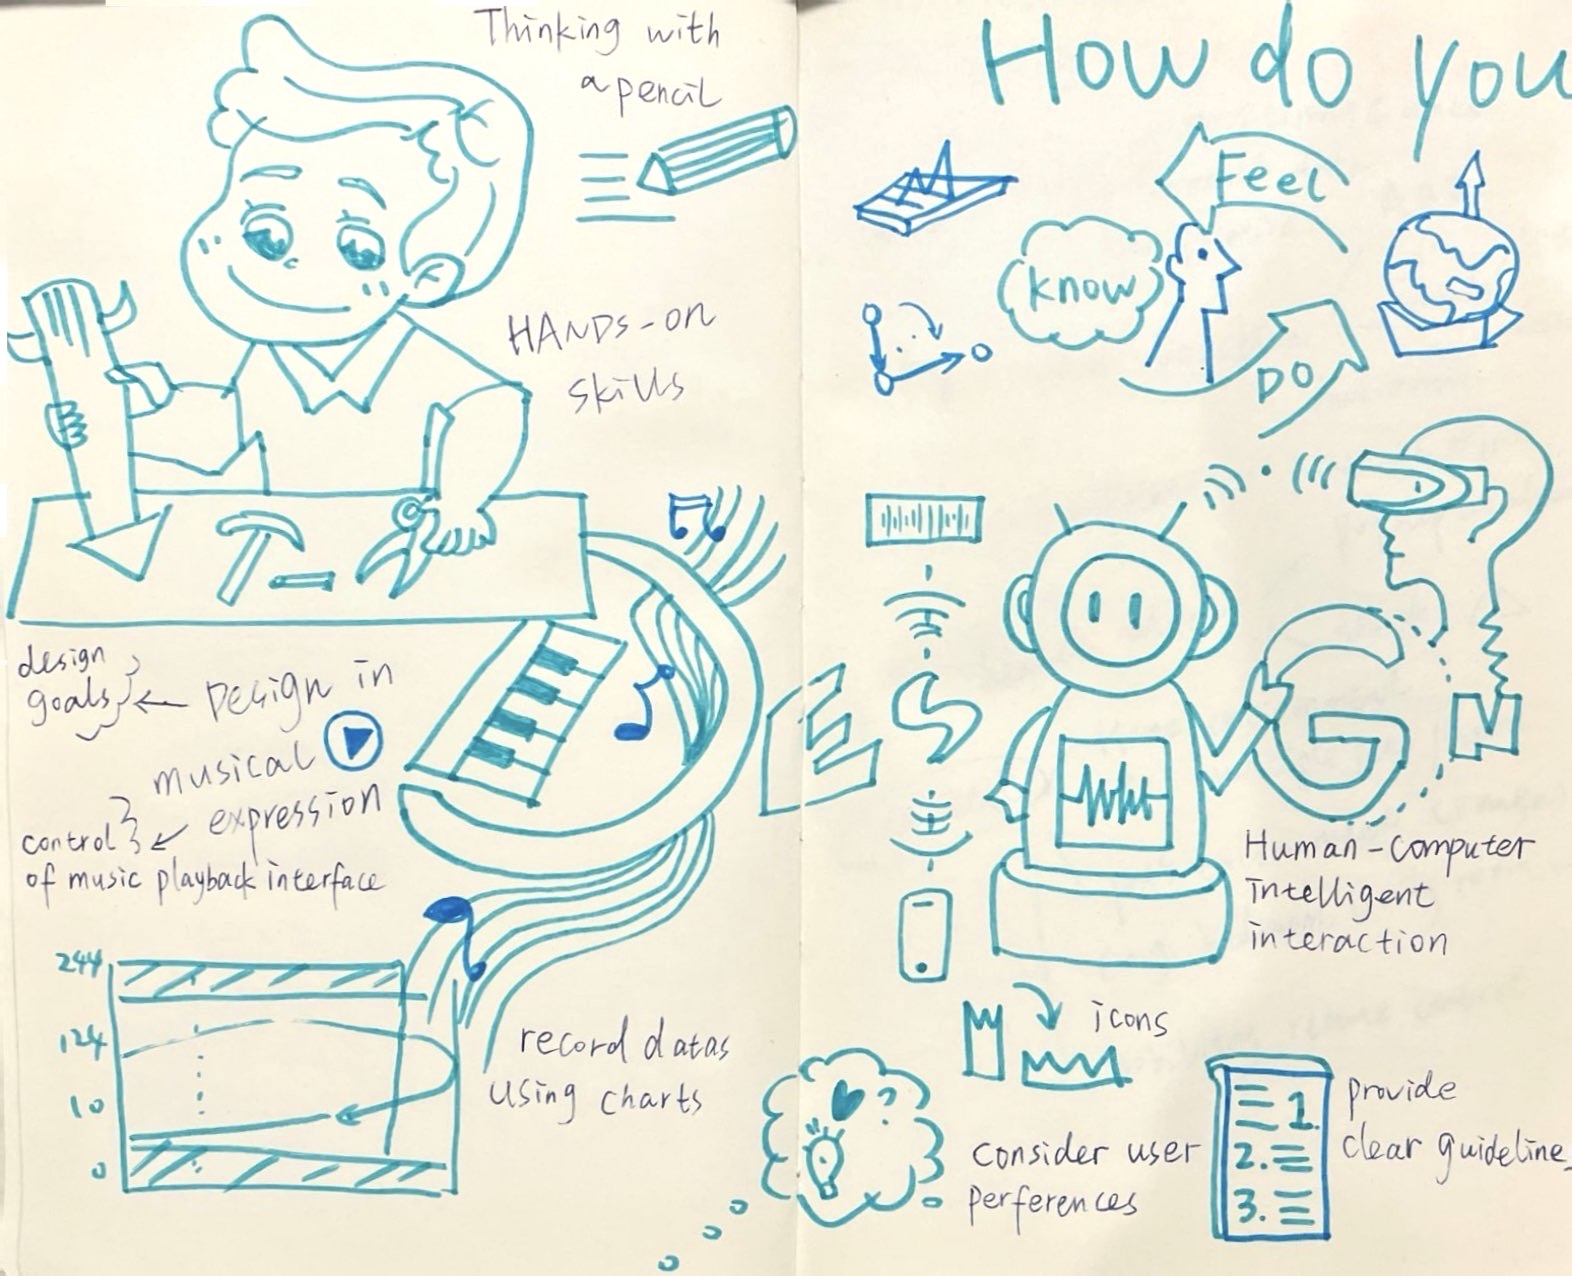 Thinking with
a pencil
HANDS-on
skills
design
goals
Design in
musical
expression
control
of music playback interface
244
124
10
0
record datas
using charts
How do you
Feel
know
DO
E
S
G
N
Human-computer
intelligent
interaction
icons
consider user
perferences
?
1.
2.
3.
provide
clear guideline